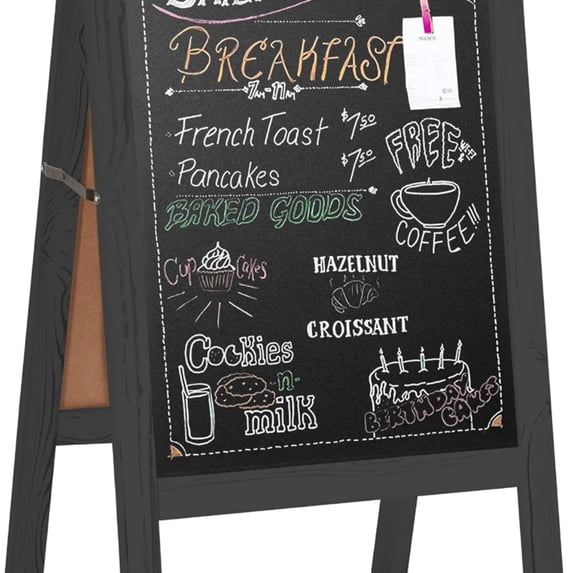 BREAKFAST
7AM-11AM
French Toast $7.50
Pancakes $7.50
FREE
COFFEE!!!
BAKED GOODS
Cup Cakes
HAZELNUT
CROISSANT
Cookies
-n-
milk
BIRTHDAY
CAKES